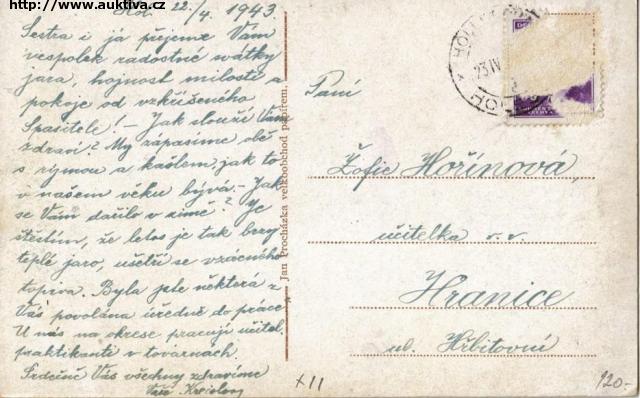 http://www.auktiva.cz
Hol. 22./4. 1943.
Sestra i já přejeme Vám
vespolek radostné svátky
jara, hojnost milosti a
pokoje od vzkříšeného
Spasitele! – Jak slouží Vám
zdraví? My zápasíme obě
s rýmou a kašlem, jak to
v našem věku bývá. – Jak
se Vám dařilo v zimě? Je
štěstím, že letos je tak brzy
teplé jaro, ušetří se vzácného
topiva. Byla jste některá z
Vás povolána úředně do práce?
U nás na okrese pracují učitel.
praktikanti v továrnách.
Srdečně Vás všechny zdravíme
Vaše
Jan Procházka velkoobchod papírem,
Paní
Žofie Hořínová,
učitelka v. v.
Hranice
ul. Hřbitovní
XII
120.-